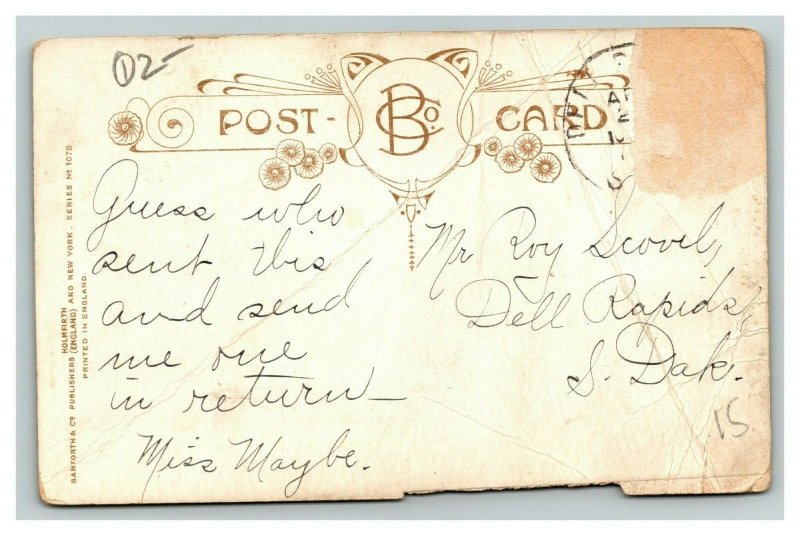 02-
POST-
BCo.
CARD
Guess who
sent this
and send
me one
in return—
Miss Maybe.
Mr Roy Scovil,
Dell Rapids,
S. Dak.
15
BAMFORTH & Co PUBLISHERS (ENGLAND) AND NEW YORK. SERIES No 1075.
HOLMFIRTH
PRINTED IN ENGLAND.